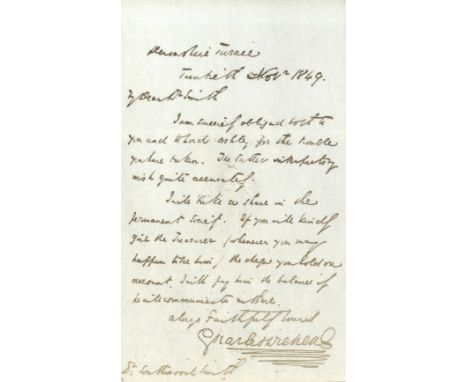 Devonshire Terrace
Twentieth Novr. 1849.
My Dear Dr. Smith
I am
obliged both to
you and to Lord Ashley, for the trouble
you have taken. The latter interprets my
wish quite accurately.
I will take a share in the
permanent Society. If you will kindly
give the Treasurer (whenever you may
happen to see him) the cheque you hold on
account, I will pay him the balance
if he will communicate with me.
always Faithfully Yours
Charles Dickens
Dr. Southwood Smith